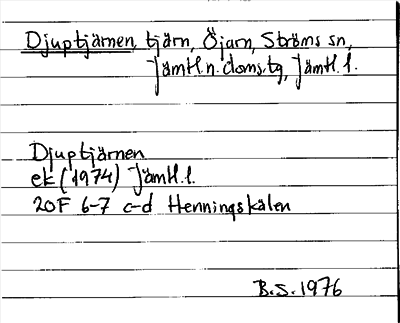 Djuptjärnen, tjärn, Öjarn, Ströms sn,
Jämtl.n.doms.tg, Jämtl.l.
Djuptjärnen
ek (1974) Jämtl.l.
20F 6-7 c-d Henningskälen
B.S. 1976